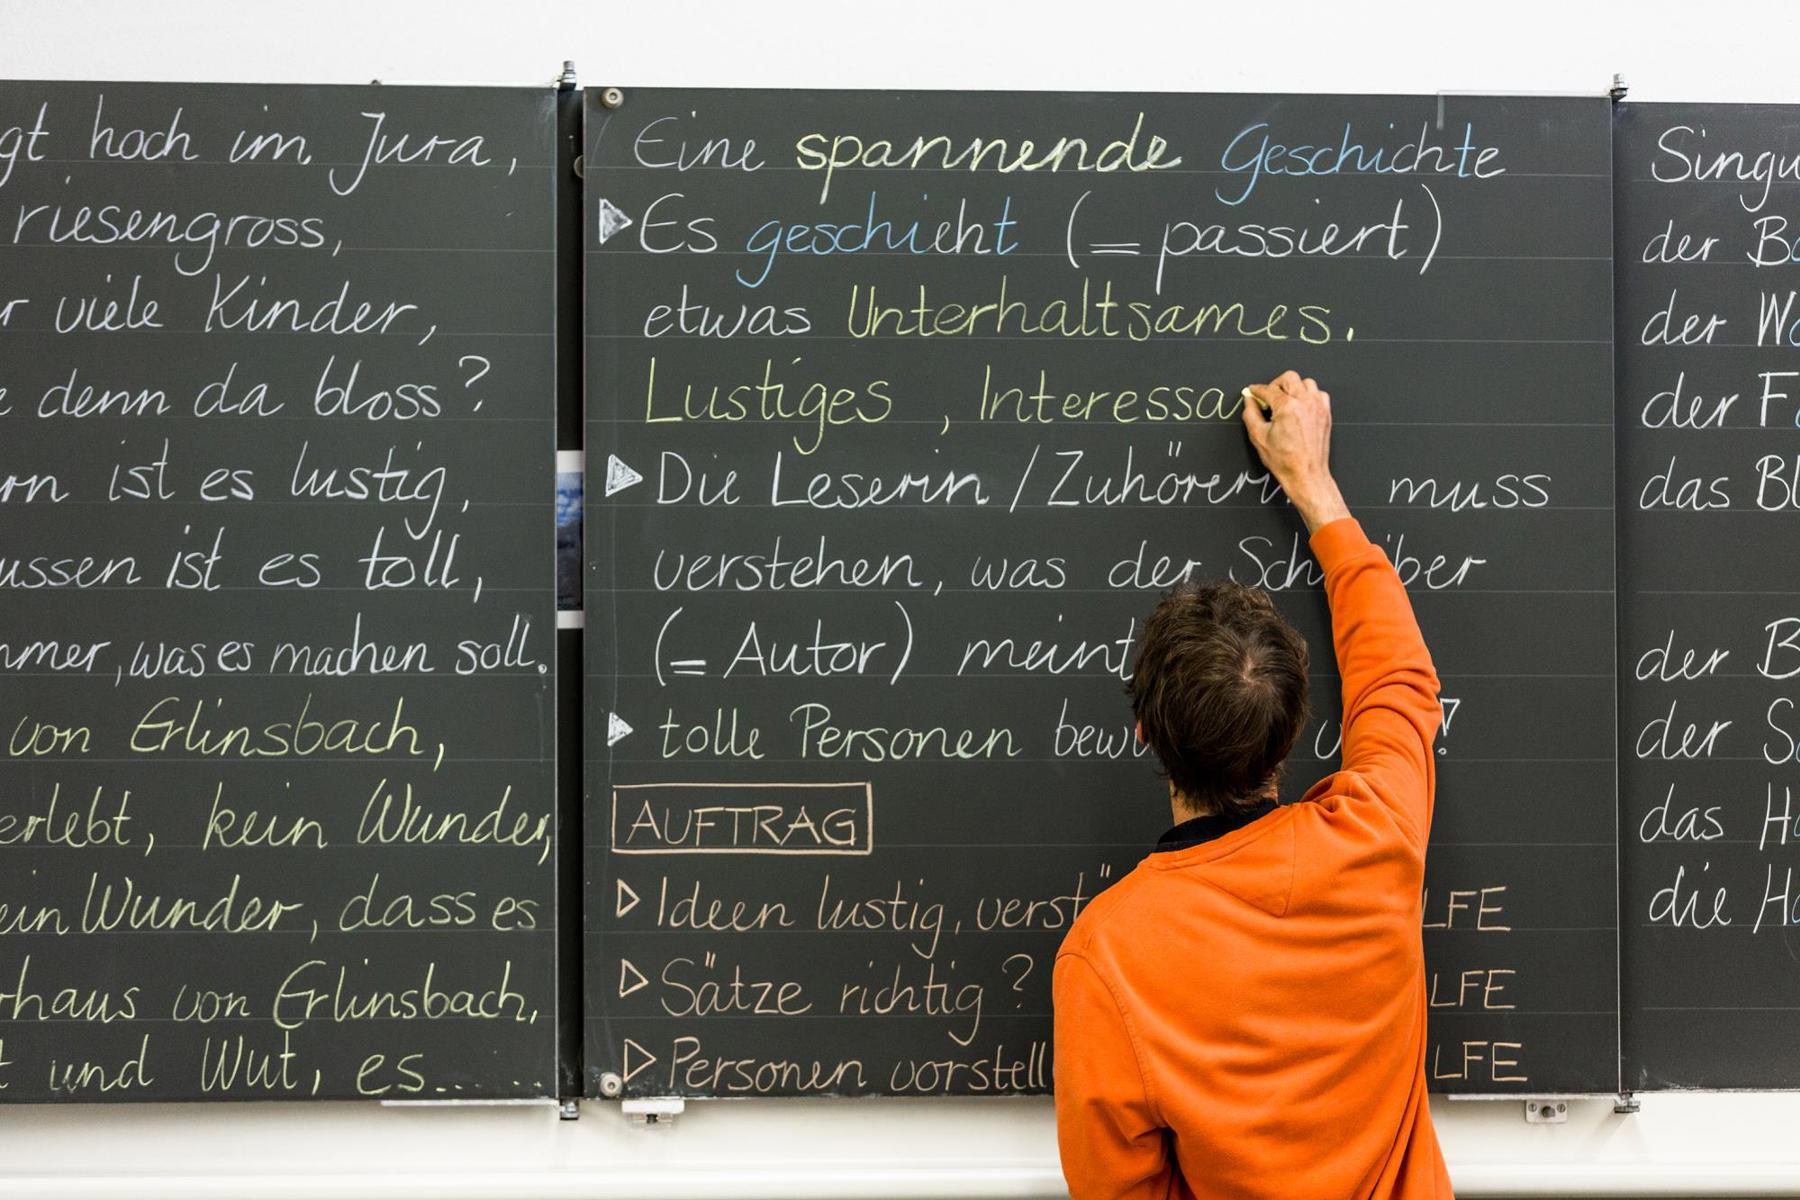 gt hoch im Jura,
riesengross,
r viele Kinder,
e denn da bloss?
rn ist es lustig,
ussen ist es toll,
mmer, was es machen soll.
von Erlinsbach,
erlebt, kein Wunder,
ein Wunder, dass es
rhaus von Erlinsbach,
t und Wut, es.....
Eine spannende Geschichte
Es geschieht (= passiert)
etwas Unterhaltsames.
Lustiges , Interessa
Die Leserin / Zuhörerin muss
verstehen, was der Schreiber
(= Autor) meint
tolle Personen bew
AUFTRAG
Ideen lustig, verst LFE
Sätze richtig? LFE
Personen vorstell LFE
Singu
der B
der W
der F
das Bl
der B
der S
das H
die H